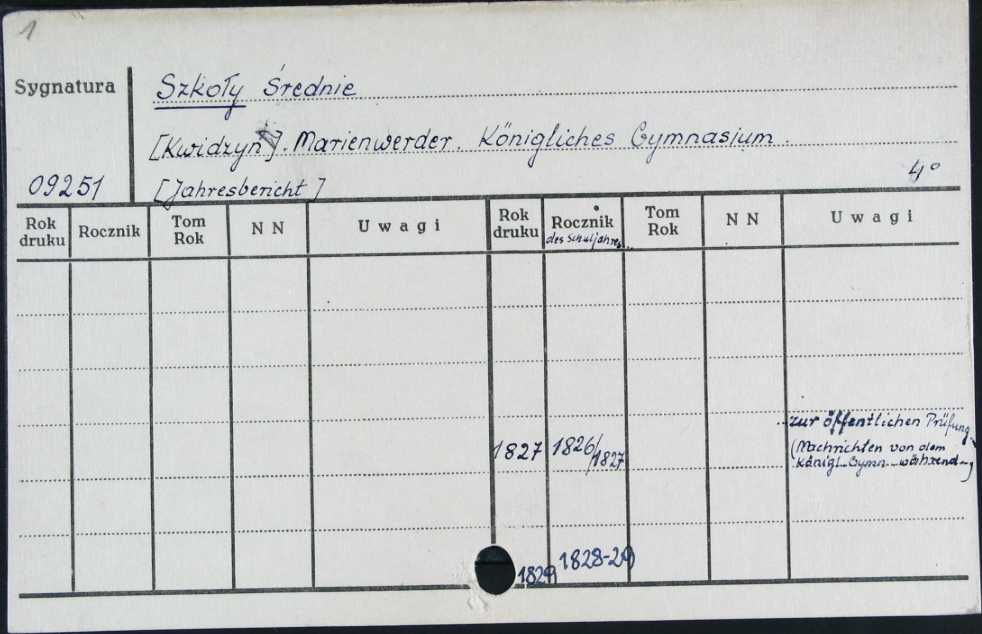 1
Sygnatura
Szkoły Średnie
[Kwidzyń]. Marienwerder. Königliches Gymnasium.
4°
09251
[Jahresbericht]
Rok druku Rocznik Tom Rok N N Uwagi Rok druku Rocznik des Schuljahres... Tom Rok N N Uwagi
...zur öffentlichen Prüfung
1827 1826/1827
(Nachrichten von dem
Königl. Gymn. während...)
1829 1828-29